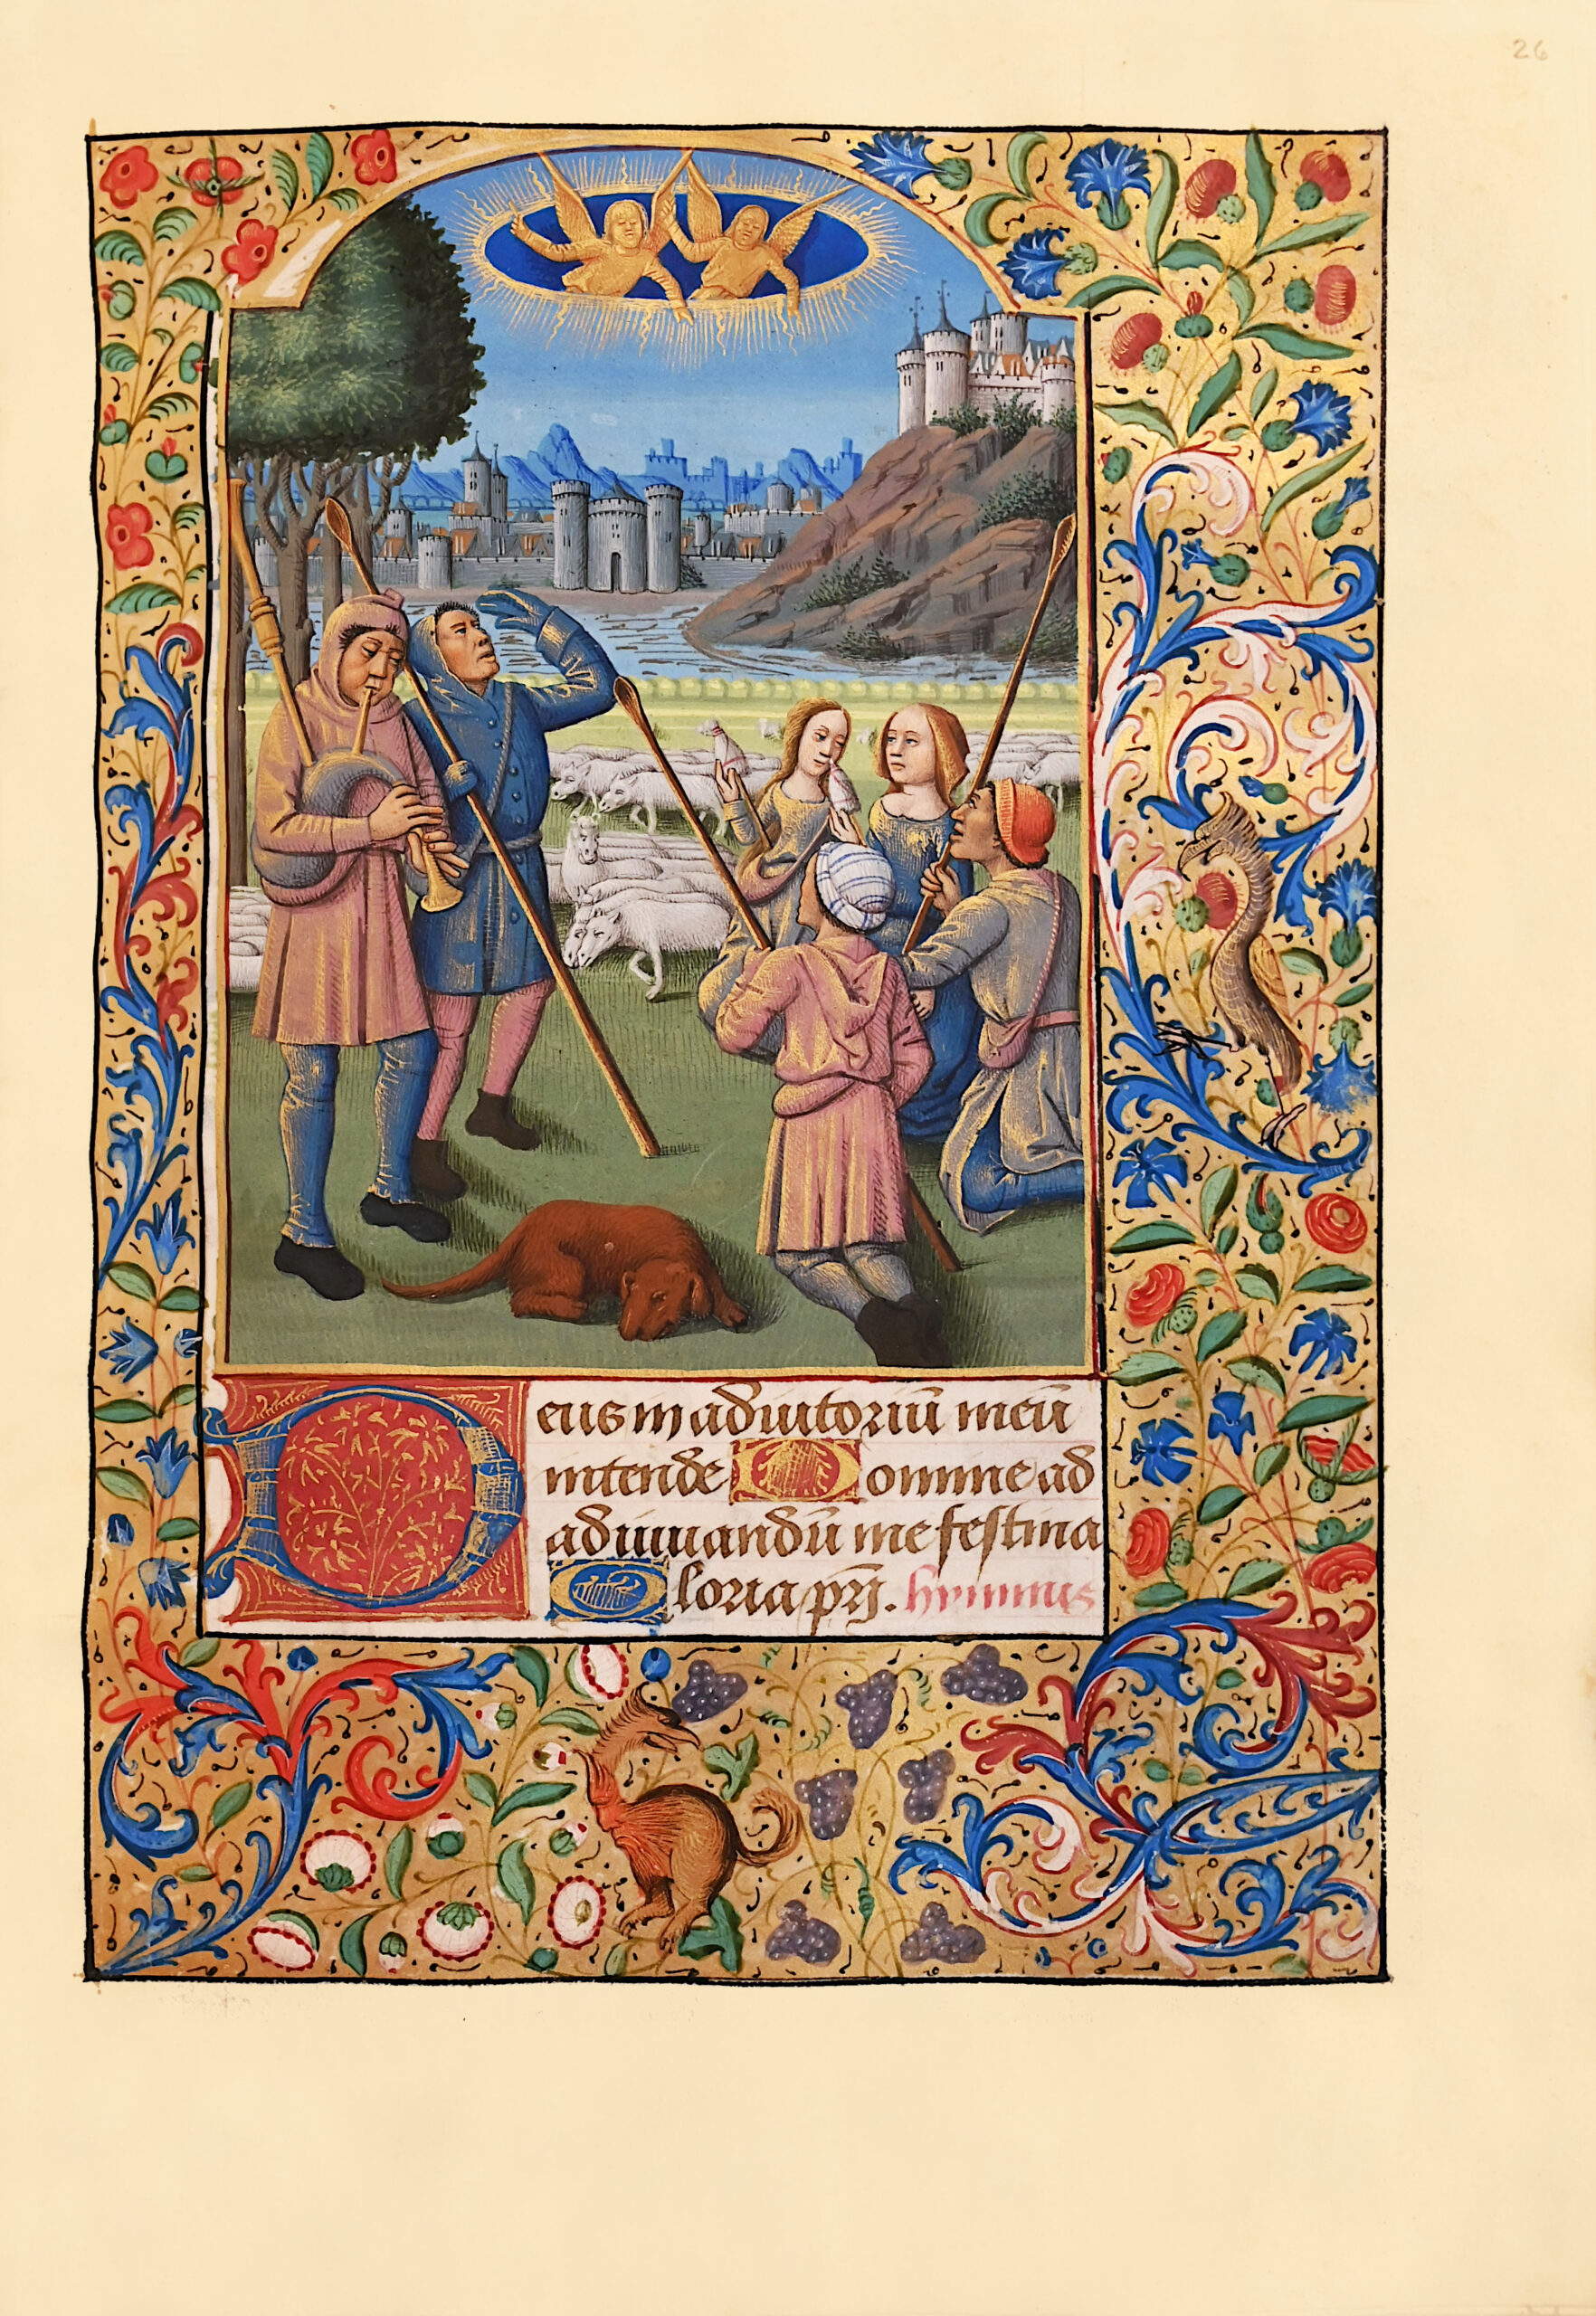 26
Deus in adiutoriū meū
intende Domine ad
adiuuandū me festina
Gloria pr̄j. hymnus